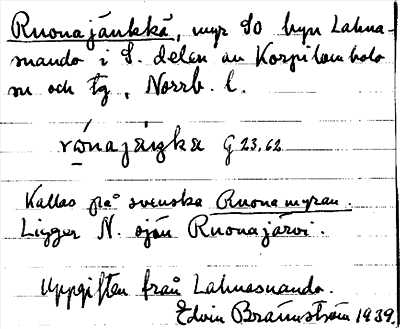 Ruonajänkkä, myr SO byn Lahna-
suando i S. delen av Korpilombolo
sn och tg, Norrb. l.
rṷonajäŋka G 23,62
Kallas på svenska Ruonamyran.
Ligger N. sjön Ruonajärvi.
Uppgiften från Lahnasuando.
Edvin Brännström 1939.